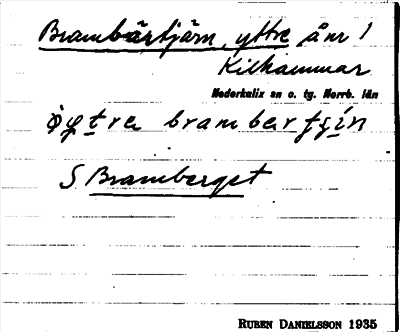 Brambärtjärn, yttre å nr 1
Kilhammar
Nederkalix sn o. tg. Norrb. län
S Bramberget
RUBEN DANIELSSON 1935